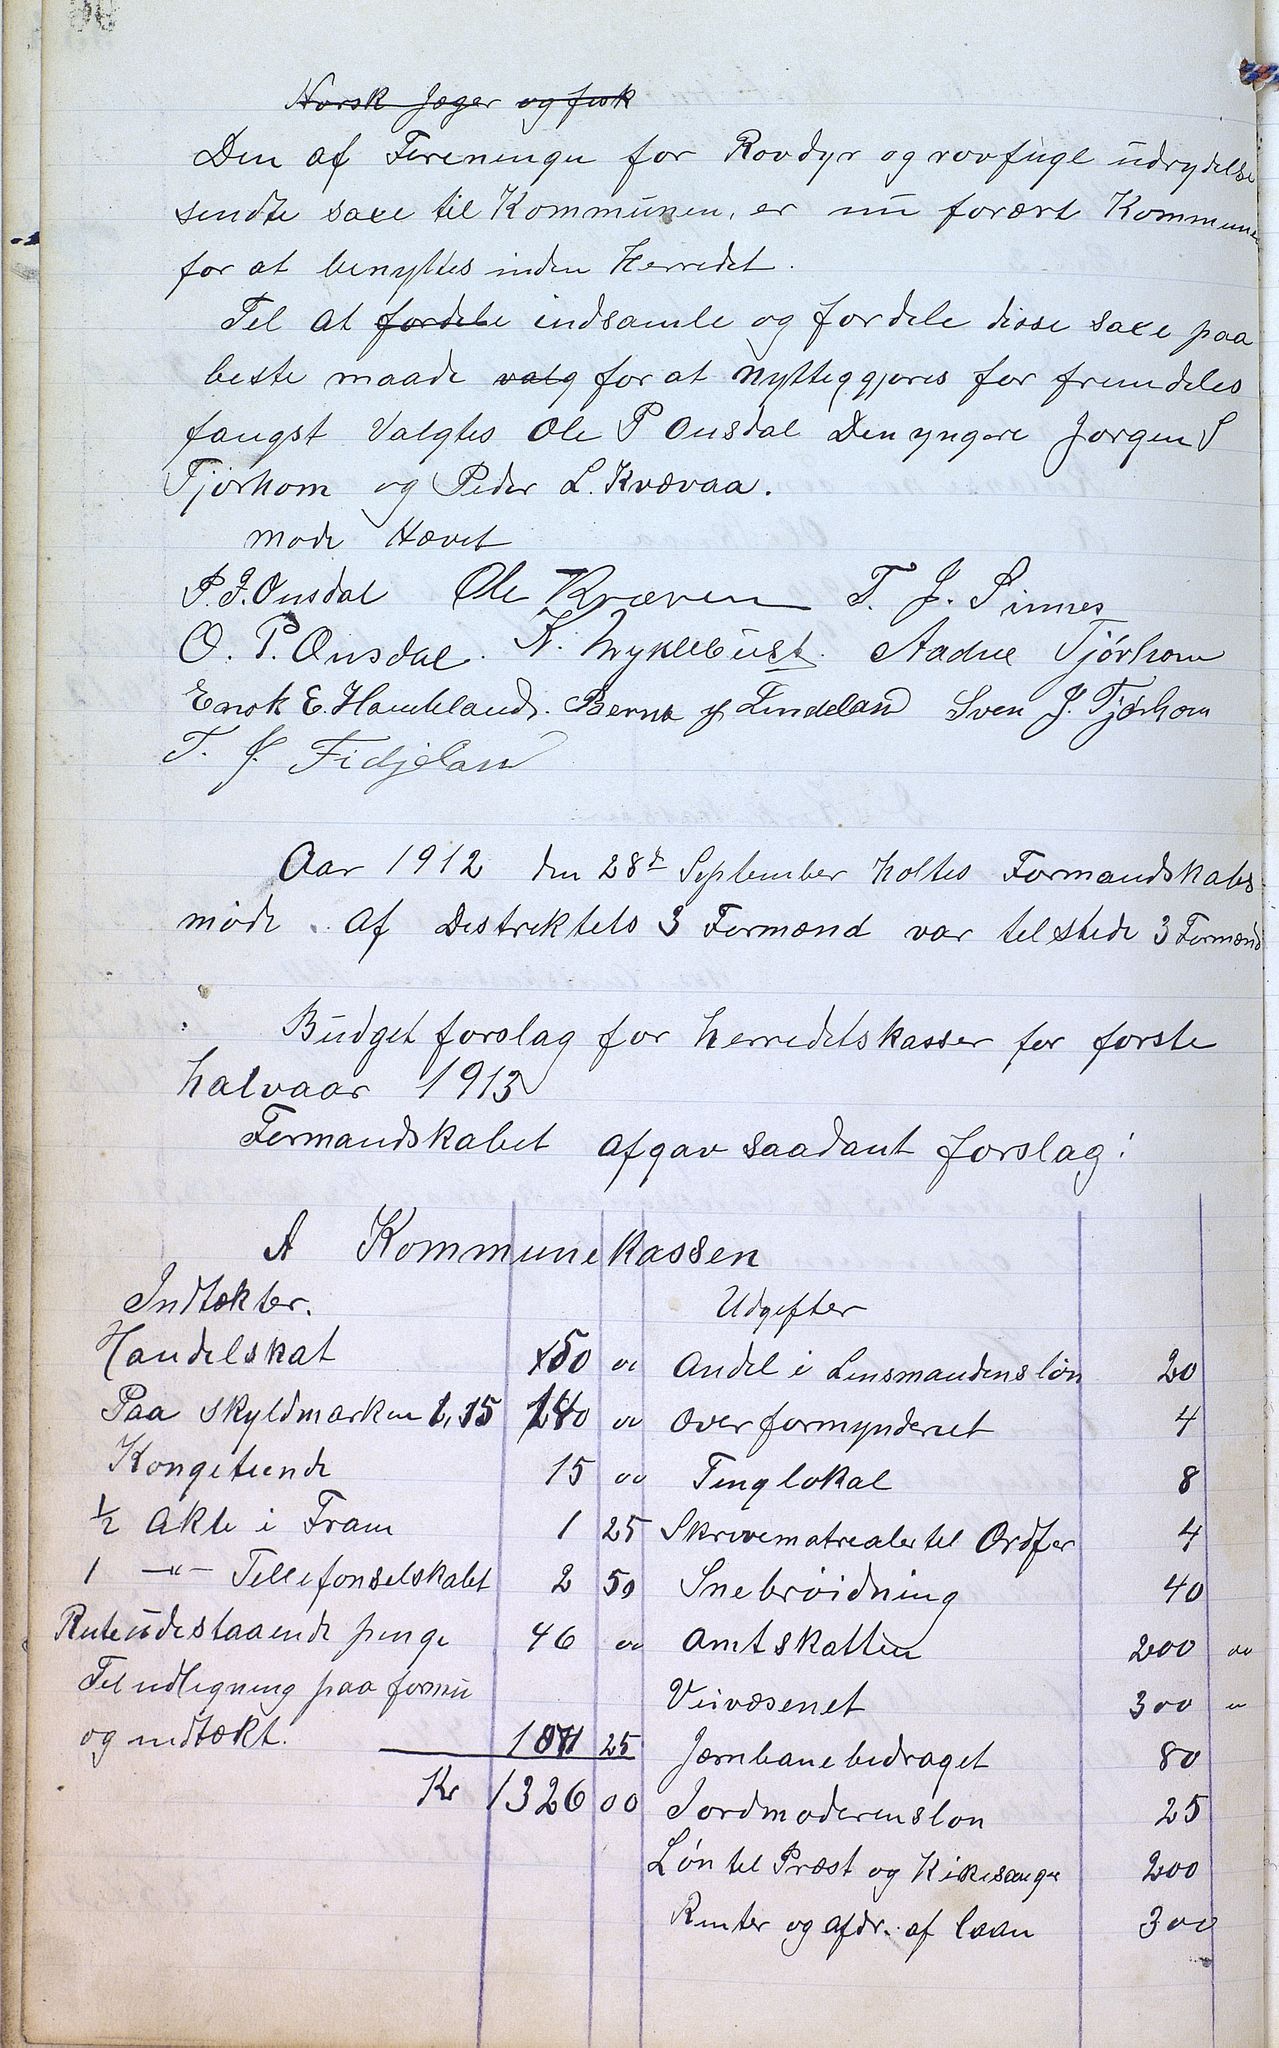 Norsk Jæger og fisk
Den af Foreninge for Rovdyr og rovfugl udrydelse
sendte saxe til Kommunen, er nu foræret Kommune
for at benyttes inden Herredet.
Til at fordele indsamle og fordele disse saxe paa
beste maade valg for at nytteggjøres for fremdeles
fangst Valgtes Ole P Ousdal Den yngere Jørgen S
Tjørhom og Peder L. Kvævaa.
møde Hævet
P. J. Ousdal Ole Kvæven T. J. Sinnes
O. P. Ousdal. K. Myklebust. Aadne Tjórhom
Enok E. Haneland. Bernt Lindeland Sven J. Tjørhom
T. J. Fidjelan
Aar 1912 den 28de September holtes Formandskabs
møde. Af Distriktets 3 Formænd var tel stede 3 Formænd
Budget forslag for herredetskasser for første
halvaar 1913
Formandskabet afgav saadant forslag:
A Kommunekassen
Indtækter. Udgifter
Handelskat 50 00 Andel i Lensmandens løn 20
Paa skyldmarken 1,15 180 00 Overformynderiet 4
Kongetiende 15 00 Tinglokal 8
1/2 Akte i Fram 1 25 Skrivematrealer til Ordfør 4
1 -"- Tellefonselskabet 2 50 Snebrøidning 40
Rente udestaaende penge 46 00 Amtskatten 200 00
Tel udligning paa formu Veivæsenet 300 "
og indtækt. 1071 25 Jærnbanebidraget 80
Kr 1326 00 Jordmoderens løn 25
Løn tel Præst og Kirkesanger 200
Renter og afdr. af laan 300